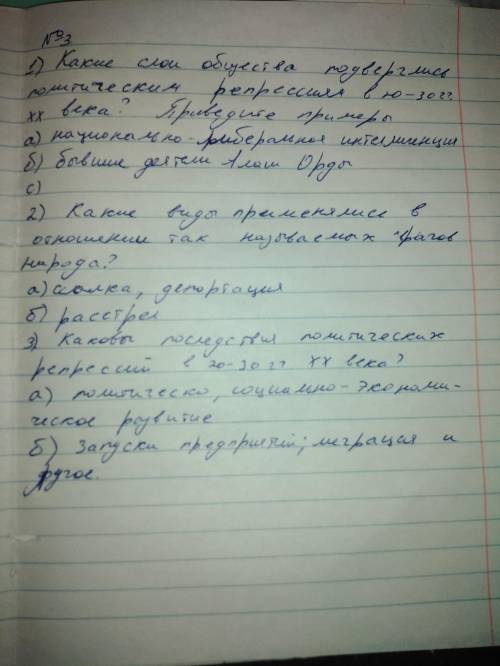 №3
1) Какие слои общества подверглись
политическим репрессиям в 20-30 гг
XX века? Приведите примеры
а) национально-либеральная интеллигенция
б) бывшие деятели Алаш Орды
с)
2) Какие виды применялись в
отношении так называемых врагов
народа?
а) ссылка, депортация
б) расстрел
3) Каковы последствия политических
репрессий в 20-30 гг XX века?
а) политическо, социально-экономи-
ческое развитие
б) Запуски предприятий; миграция и
другое.